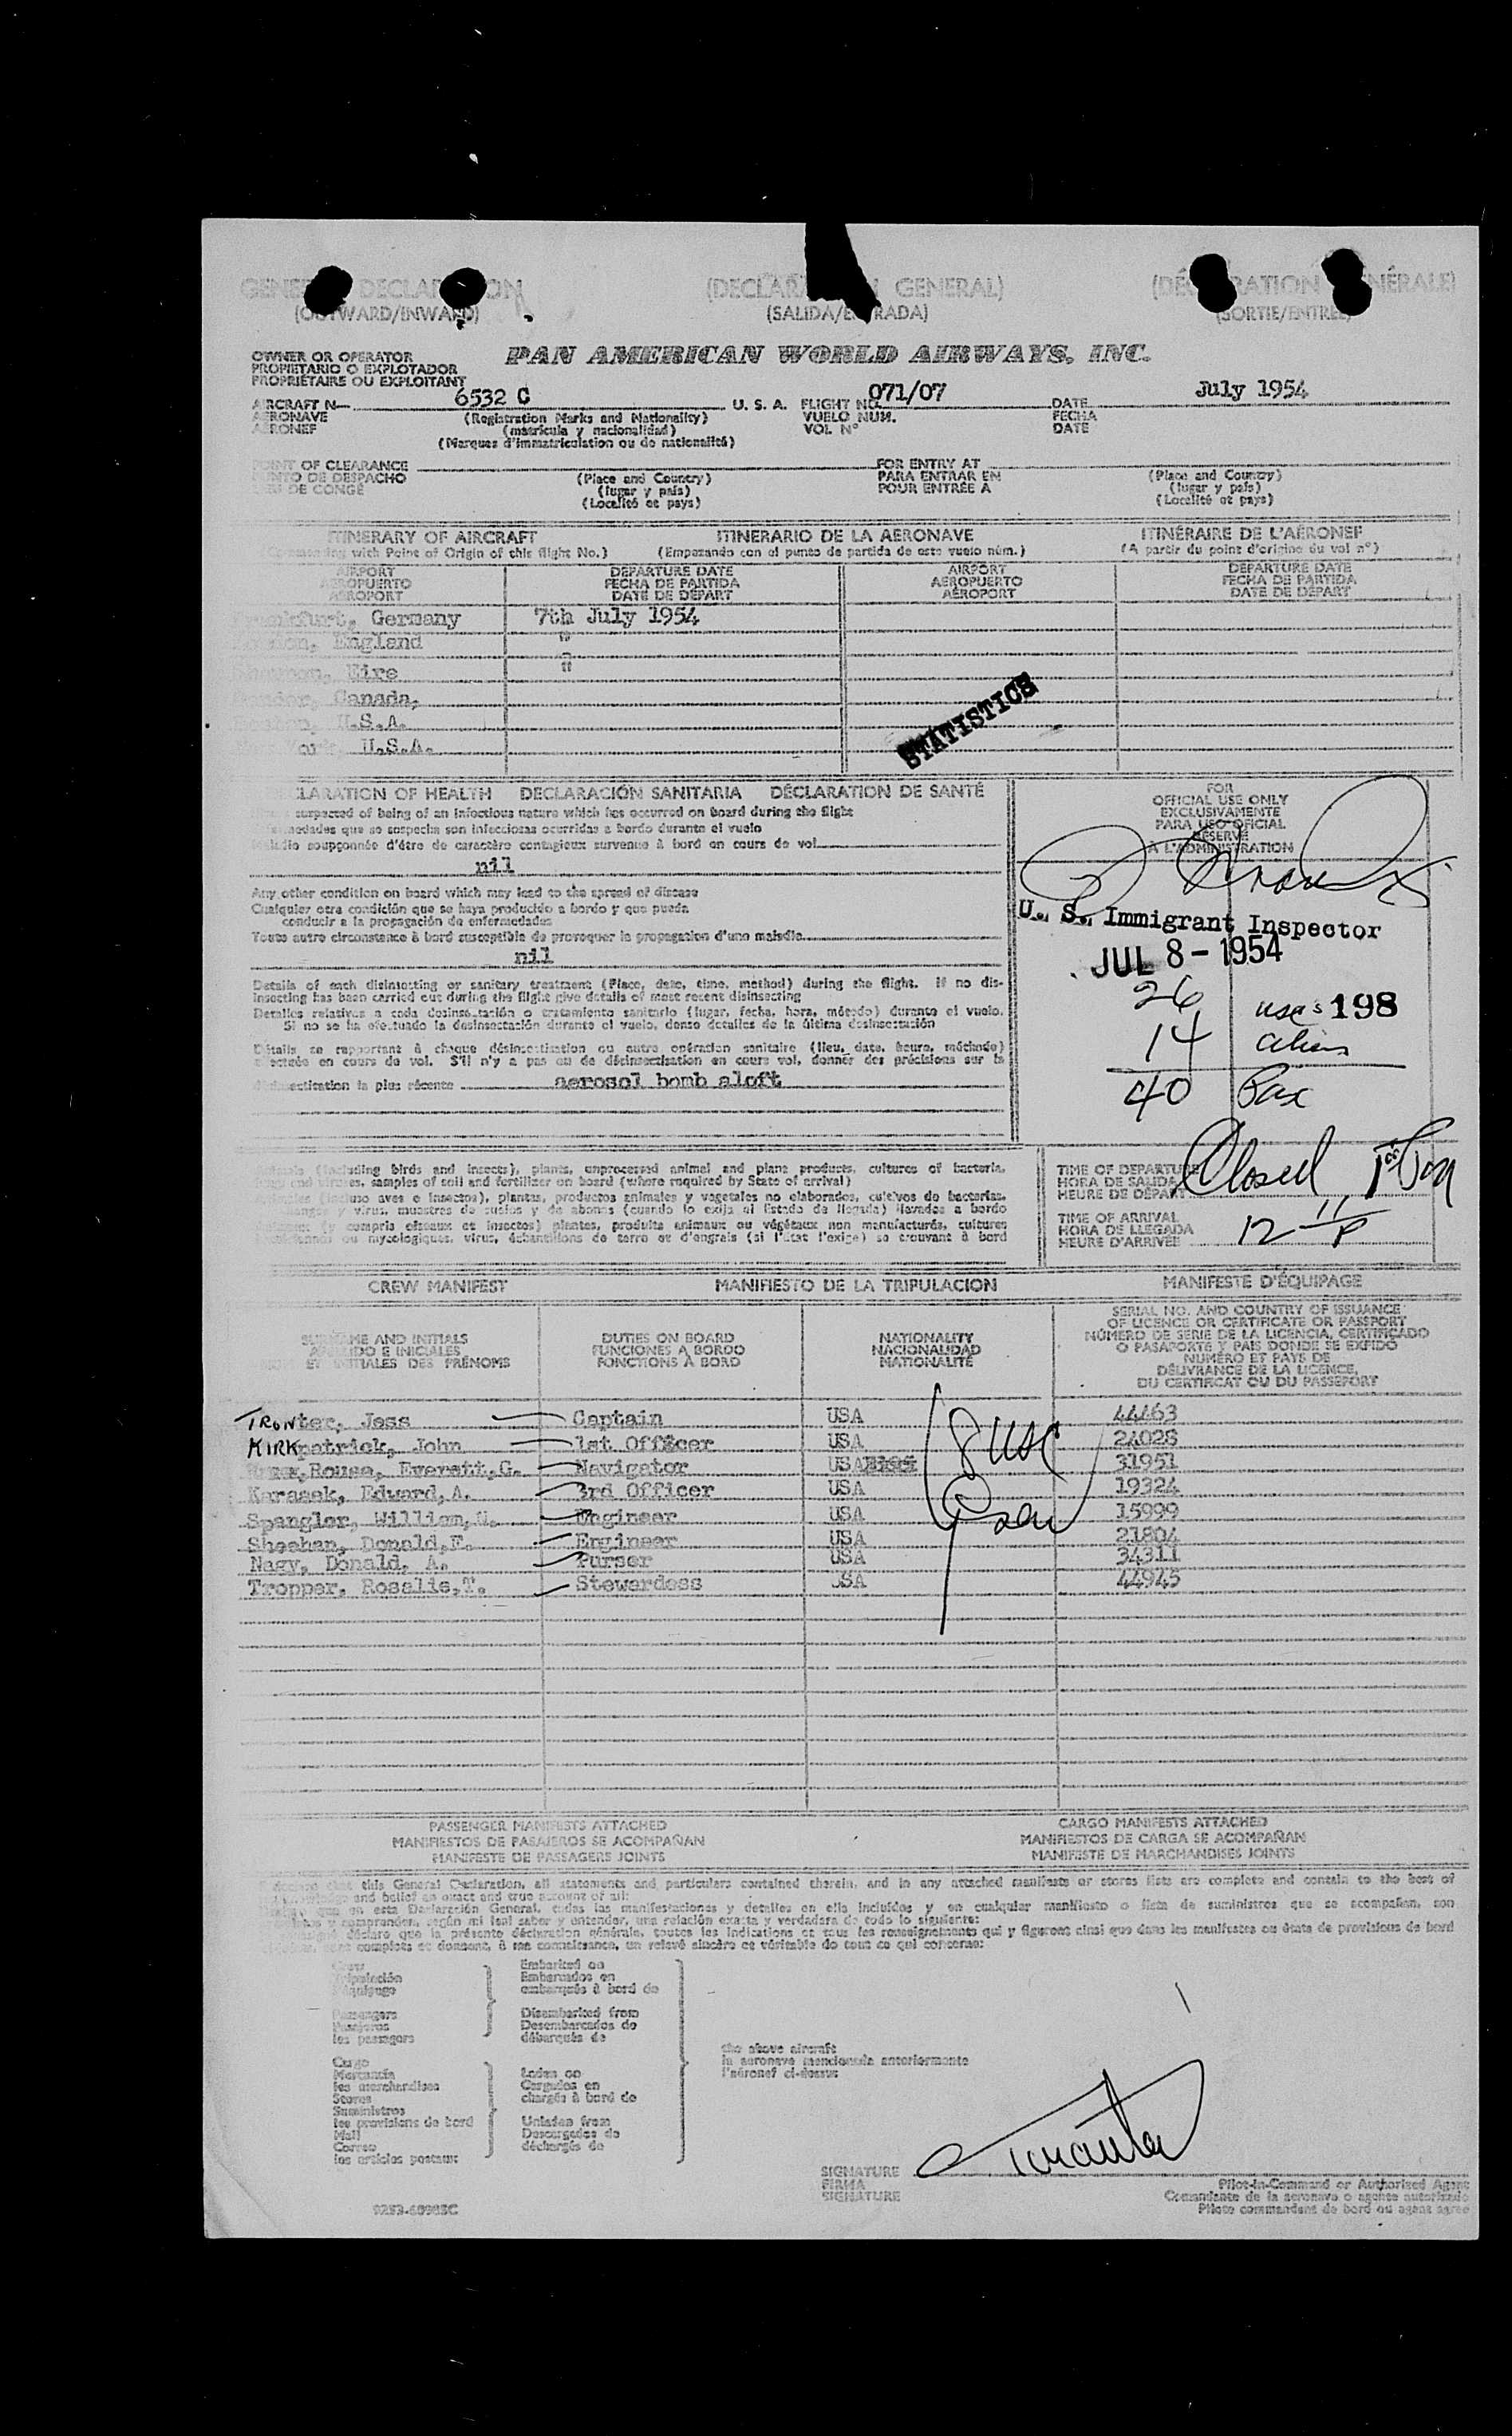 GENE DECLA ON (DECLAR GENERAL) (DÉ RATION NÉRALE)
(OUTWARD/INWARD) (SALIDA/E RADA) (SORTIE/ENTRÉE)
OWNER OR OPERATOR PAN AMERICAN WORLD AIRWAYS, INC.
PROPIETARIO O EXPLOTADOR
PROPRIÉTAIRE OU EXPLOITANT
AIRCRAFT N— 6532 C U. S. A. FLIGHT NO. 071/07 DATE July 1954
AERONAVE (Registration Marks and Nationality) VUELO NUM. FECHA
AÉRONEF (matrícula y nacionalidad) VOL N° DATE
(Marques d'immatriculation ou de nationalité)
POINT OF CLEARANCE FOR ENTRY AT
PUNTO DE DESPACHO (Place and Country) PARA ENTRAR EN (Place and Country)
DE CONGÉ (lugar y país) POUR ENTRÉE A (lugar y país)
(Localité et pays) (Localité et pays)
ITINERARY OF AIRCRAFT ITINERARIO DE LA AERONAVE ITINÉRAIRE DE L'AÉRONEF
(Commencing with Point of Origin of this flight No.) (Empezando con el punto de partida de este vuelo núm.) (A partir du point d'origine du vol n°)
AIRPORT DEPARTURE DATE AIRPORT DEPARTURE DATE
AEROPUERTO FECHA DE PARTIDA AEROPUERTO FECHA DE PARTIDA
AÉROPORT DATE DE DÉPART AÉROPORT DATE DE DÉPART
Frankfurt, Germany 7th July 1954
England "
Eire "
Canada,
U.S.A.
York, U.S.A.
STATISTICS
CLARATION OF HEALTH DECLARACIÓN SANITARIA DÉCLARATION DE SANTÉ
suspected of being of an infectious nature which has occurred on board during the flight
que se sospecha son infecciosas ocurridas a bordo durante el vuelo
soupçonnée d'être de caractère contagieux survenue à bord en cours de vol
nil
Any other condition on board which may lead to the spread of disease
Cualquier otra condición que se haya producido a bordo y que pueda
conducir a la propagación de enfermedades
Toute autre circonstance à bord susceptible de provoquer la propagation d'une maladie
nil
Details of each disinsecting or sanitary treatment (Place, date, time, method) during the flight. If no dis-
insecting has been carried out during the flight give details of most recent disinsecting
Detalles relativos a cada desinsectación o tratamiento sanitario (lugar, fecha, hora, método) durante el vuelo.
Si no se ha efectuado la desinsectación durante el vuelo, dense detalles de la última desinsectación
Détails se rapportant à chaque désinsectisation ou autre opération sanitaire (lieu, date, heure, méthode)
effectuée en cours de vol. S'il n'y a pas eu de désinsectisation en cours vol, donner des précisions sur la
désinsectisation la plus récente aerosol bomb aloft
FOR
OFFICIAL USE ONLY
EXCLUSIVAMENTE
PARA USO OFICIAL
RESERVÉ
A L'ADMINISTRATION
U. S. Immigrant Inspector
JUL 8 - 1954
26 uscs 198
14 aliens
40 Pax
Animals (including birds and insects), plants, unprocessed animal and plant products, cultures of bacteria,
viruses, samples of soil and fertilizer on board (where required by State of arrival)
(incluso aves e insectos), plantas, productos animales y vegetales no elaborados, cultivos de bacterias,
y virus, muestras de suelos y de abonos (cuando lo exija el Estado de llegada) llevados a bordo
(y compris oiseaux et insectes) plantes, produits animaux ou végétaux non manufacturés, cultures
ou mycologiques, virus, échantillons de terre et d'engrais (si l'Etat l'exige) se trouvant à bord
TIME OF DEPARTURE Closed
HORA DE SALIDA
HEURE DE DÉPART
TIME OF ARRIVAL 12 11 P
HORA DE LLEGADA
HEURE D'ARRIVÉE
CREW MANIFEST MANIFIESTO DE LA TRIPULACION MANIFESTE D'ÉQUIPAGE
SURNAME AND INITIALS DUTIES ON BOARD NATIONALITY SERIAL NO. AND COUNTRY OF ISSUANCE
APELLIDO E INICIALES FUNCIONES A BORDO NACIONALIDAD OF LICENCE OR CERTIFICATE OR PASSPORT
ET INITIALES DES PRÉNOMS FONCTIONS À BORD NATIONALITÉ NÚMERO DE SERIE DE LA LICENCIA, CERTIFICADO
O PASAPORTE Y PAIS DONDE SE EXPIDÓ
NUMÉRO ET PAYS DE
DÉLIVRANCE DE LA LICENCE,
DU CERTIFICAT OU DU PASSEPORT
TRONter, Jess Captain USA 44463
KIRKpatrick, John 1st Officer USA 24028
Rouse, Everett, G. Navigator USA 31951
Karasek, Edward, A. 3rd Officer USA 19324
Spangler, William, Engineer USA 15999
Sheehan, Donald, F. Engineer USA 21804
Nagy, Donald, A. Purser USA 34311
Tropper, Rosalie, T. Stewardess USA 44945
8 USC
PASSENGER MANIFESTS ATTACHED CARGO MANIFESTS ATTACHED
MANIFIESTOS DE PASAJEROS SE ACOMPAÑAN MANIFIESTOS DE CARGA SE ACOMPAÑAN
MANIFESTE DE PASSAGERS JOINTS MANIFESTE DE MARCHANDISES JOINTS
I declare that this General Declaration, all statements and particulars contained therein, and in any attached manifests or stores lists are complete and contain to the best of
knowledge and belief an exact and true account of all:
que en esta Declaración General, todas las manifestaciones y detalles en ella incluídos y en cualquier manifiesto o lista de suministros que se acompañan, son
y comprenden, según mi leal saber y entender, una relación exacta y verdadera de todo lo siguiente:
déclare que la présente déclaration générale, toutes les indications et tous les renseignements qui y figurent ainsi que dans les manifestes ou états de provisions de bord
sont complets et donnent, à ma connaissance, un relevé sincère et véritable de tout ce qui concerne:
Crew Embarked on
Tripulación Embarcados en
l'équipage embarqués à bord de
Passengers Disembarked from
Pasajeros Desembarcados de
les passagers débarqués de
the above aircraft
la aeronave mencionada anteriormente
l'aéronef ci-dessus
Cargo
Mercancía Laden on
les merchandises Cargados en
Stores chargés à bord de
Suministros
les provisions de bord Unladen from
Mail Descargados de
Correo déchargés de
les articles postaux
SIGNATURE
FIRMA
SIGNATURE
Pilot-in-Command or Authorized Agent
Comandante de la aeronave o agente autorizado
Pilote commandant de bord ou agent agréé